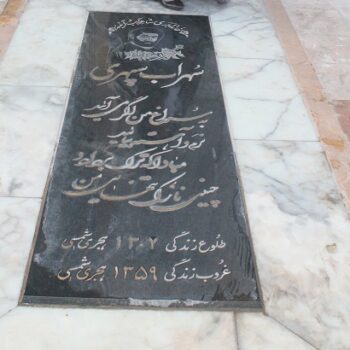 سهراب سپهری
به سراغ من اگر می آئید
نرم و آهسته بیائید
مبادا که ترک بردارد
چینی نازک تنهائی من
طلوع زندگی ۱۳۰۷ هجری شمسی
غروب زندگی ۱۳۵۹ هجری شمسی